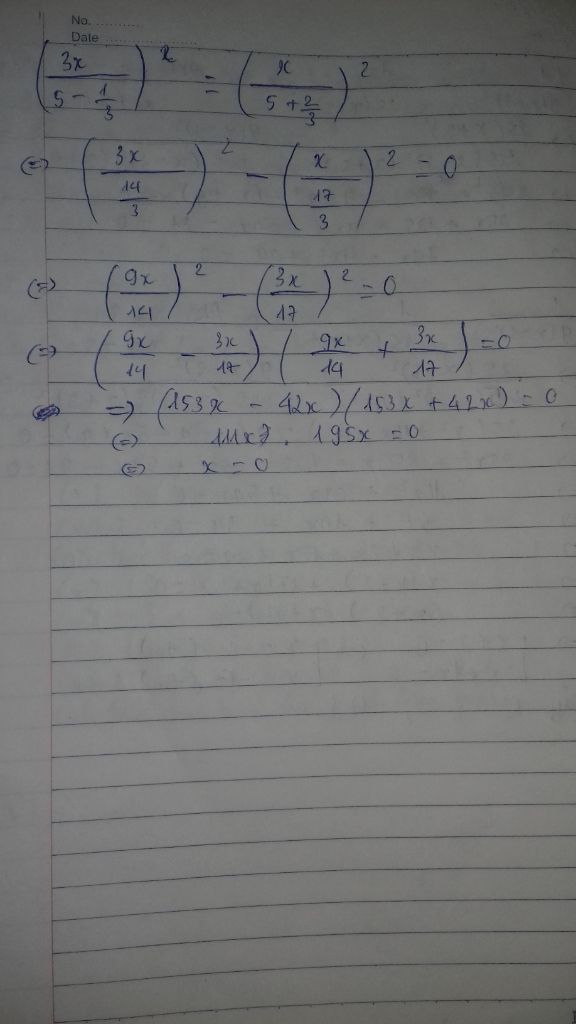 No. ............
Date ........................
(3x / (5 - 1/3))² = (x / (5 + 2/3))²
⇔ (3x / (14/3))² - (x / (17/3))² = 0
⇔ (9x/14)² - (3x/17)² = 0
⇔ (9x/14 - 3x/17) (9x/14 + 3x/17) = 0
⇒ (153x - 42x) (153x + 42x) = 0
⇔ 111x . 195x = 0
⇔ x = 0